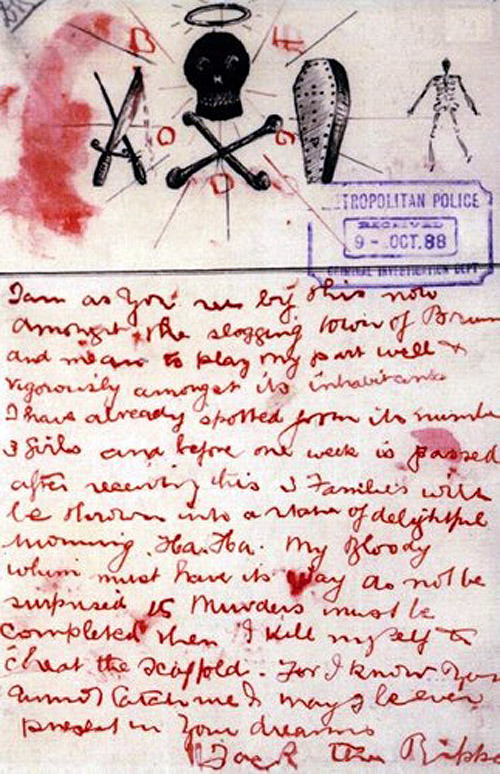 TROPOLITAN POLICE
RECEIVED
9 - OCT. 88
CRIMINAL INVESTIGATION DEPT
I am as you see by this now
amongst the slogging town of Brum
and mean to play my part well &
vigorously amongst its inhabitants
I have already spotted from its numbe
3 Girls and before one week is passed
after receiving this 3 Families will
be thrown into a state of delightful
mourning. Ha. Ha. My Bloody
whim must have its way do not be
surprised 15 Murders must be
completed then I kill myself to
cheat the scaffold. For I know you
cannot catch me & I may be even
present in your dreams
Jack the Ripp